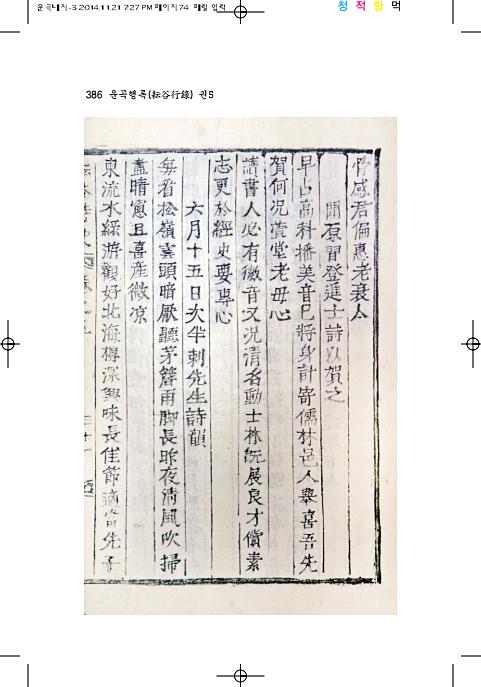 운곡내지-3 2014.11.21 7:27 PM 페이지74
청 적 황 먹
386 운곡행록(耘谷行錄) 권5
骨感君偏惠老衰人
聞 習登進士詩以賀之
早占高科播美音已將身計寄儒林邑人擧喜吾先
賀何况萱堂老母心
讀書人必有徽音又况淸名動士林旣展良才償素
志更於經史要專心
六月十五日次半刺先生詩韻
每看松嶺雲頭暗厭聽茅簷雨脚長昨夜淸風吹掃
盡晴窓且喜產微凉
東流水綠游觀好北海樽深興味長佳節適當先子